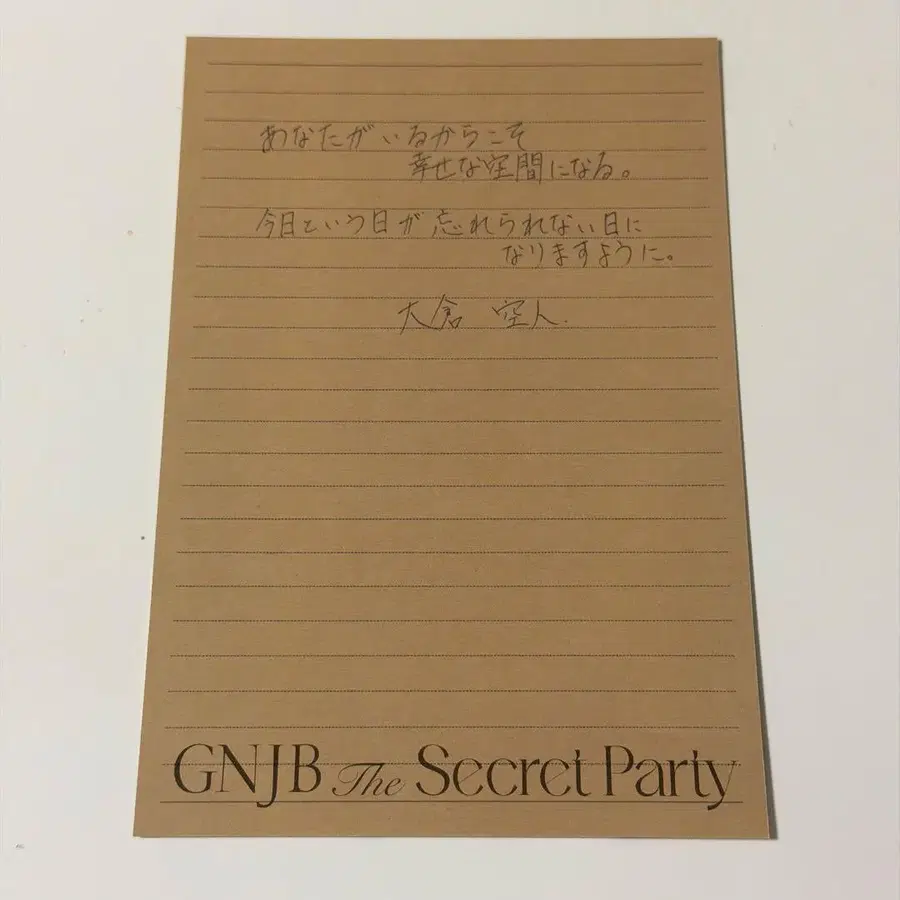 あなたがいるからこそ
幸せな空間になる。
今日という日が忘れられない日に
なりますように。
大倉 空人.
GNJB The Secret Party